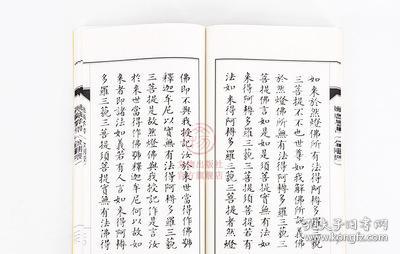 如來於然燈佛所有法得阿耨多羅三藐
三菩提不不也世尊如我解佛所說義佛
於然燈佛所無有法得阿耨多羅三藐三
菩提佛言如是如是須菩提實無有法如
來得阿耨多羅三藐三菩提須菩提若有
法如來得阿耨多羅三藐三菩提者然燈
佛即不與我授記汝於來世當得作佛號
釋迦牟尼以實無有法得阿耨多羅三藐
三菩提是故然燈佛與我授記作是言汝
於來世當得作佛號釋迦牟尼何以故如
來者即諸法如義若有人言如來得阿耨
多羅三藐三菩提須菩提實無有法佛得
官方旗舰店